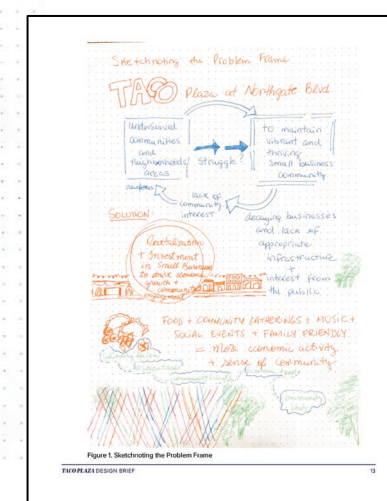 Sketchnoting the Problem Frame
TACO Plaza at Northgate Blvd
Underserved
communities
and
neighborhoods/
areas
Struggle?
to maintain
vibrant and
thriving
small business
community
lack of
community
interest
SOLUTION:
decaying businesses
and lack of
appropriate
infrastructure
+
interest from
the public
Revitalization
+ Investment
in Small Business
to drive economic
growth +
community
enjoyment
FOOD + COMMUNITY GATHERINGS + MUSIC +
SOCIAL EVENTS + FAMILY FRIENDLY
= more economic activity
+ sense of community
Figure 1. Sketchnoting the Problem Frame
TACO PLAZA DESIGN BRIEF
13